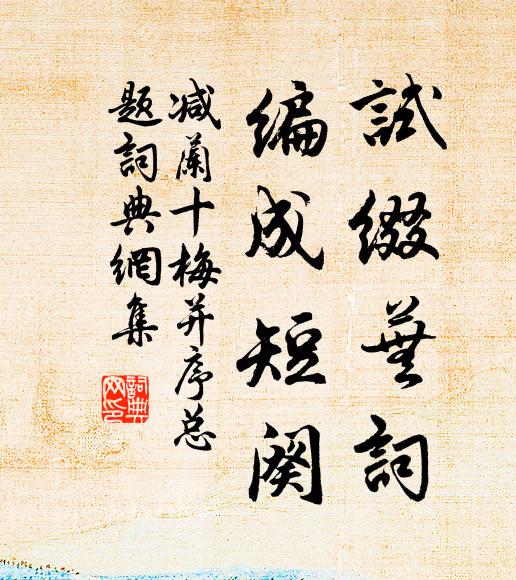 試綴蕪詞
编成短阕
减蘭十梅并序总
题詞典網集
詞典
网印